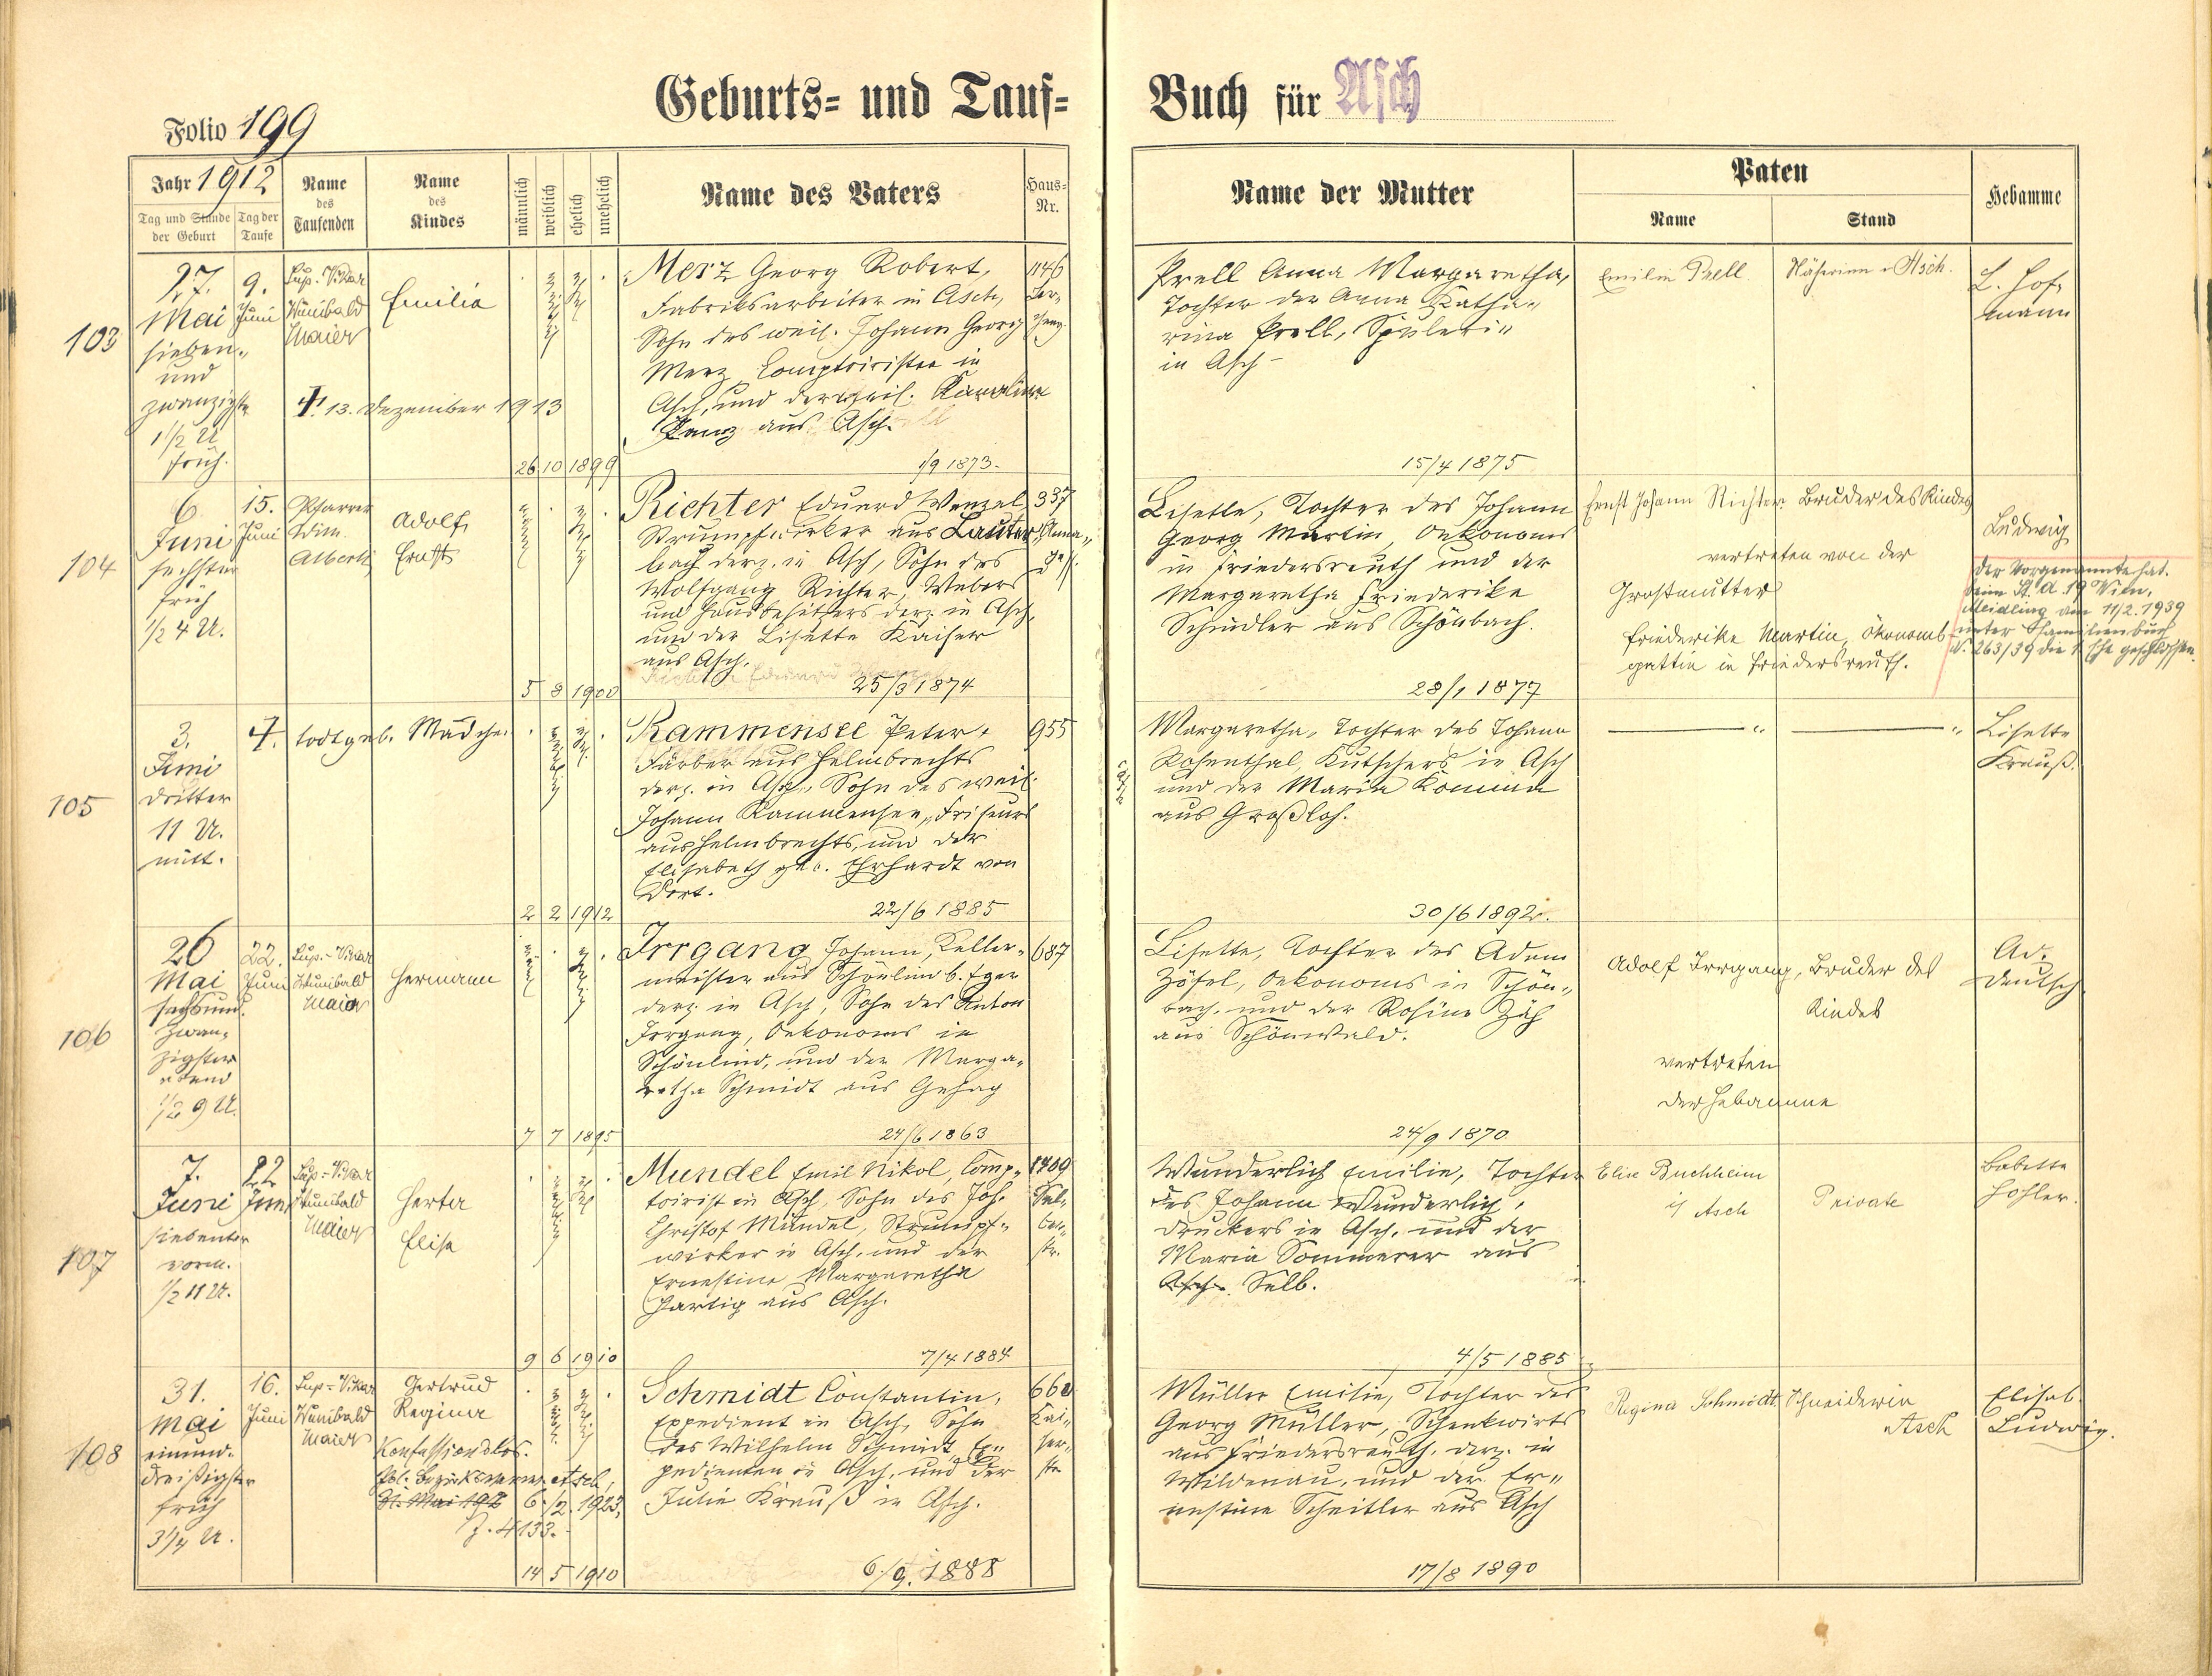 Geburts- und Tauf-
Buch für Asch
Folio 199
Jahr 1912
Tag und Stunde der Geburt
Tag der Taufe
Name des Taufenden
Name des Kindes
männlich
weiblich
ehelich
unehelich
Name des Vaters
Haus-Nr.
Name der Mutter
Paten
Name
Stand
Hebamme
103
27.
Mai
sieben-
und
zwanzigste
1 1/2 U
früh.
9.
Juni
Sup. Vikar
Wunibald
Maier
Emilia
†. 13. Dezember 1913
26 10 1899
Merz Georg Robert,
Fabriksarbeiter in Asch,
Sohn des weil. Johann Georg
Merz Comptoiristen in
Asch, und der weil. Karoline
aus Asch.
1/9 1873.
1146
Prell Anna Margaretha,
Tochter der Anna Katha-
rina Prell, Spulerin
in Asch
15/4 1875
Emilie Prell
Näherinn Asch.
L. Hof-
mann
104
6.
Juni
sechster
früh
1/2 4 U.
15.
Juni
Pfarrer
Wm.
Alberti
Adolf
Ernst
5 8 1900
Richter Eduard Wenzel
Strumpfwirker aus Lauter-
bach derz. in Asch, Sohn des
Wolfgang Richter, Webers
und Hausbesitzers derz. in Asch,
und der Lisette Kaiser
aus Asch.
25/3 1874
337
Anna-
Lisette, Tochter des Johann
Georg Martin, Oekonoms
in Friedersreuth und der
Margaretha Friederike
Schindler aus Schönbach.
28/1 1877
Ernst Johann Richter Bruder des Kindes
vertreten von der
Großmutter
Friederike Martin, Ökonoms-
gattin in Friedersreuth.
Ludwig
Der Vorgenannte hat
beim St. A. 19 Wien,
Meidling am 11/2. 1939
unter Familienbuch
N. 263/39 die 1. Ehe geschlossen.
105
3.
Juni
dritter
11 U.
mitt.
†. todtgeb. Mädchen
2 2 1912
Rammensee Peter,
Färber aus Helmbrechts
derz. in Asch, Sohn des weil.
Johann Rammensee, Friseurs
aus Helmbrechts, und der
Elisabeth geb. Ehrhardt von
dort.
22/6 1885
955
Margaretha, Tochter des Johann
Rosenthal, Kutschers in Asch
und der Maria
aus Großloh.
30/6 1892.
Lisette
Krauß.
106
26
Mai
sechsund-
zwan-
zigster
abend
1/2 9 U.
22.
Juni
Sup.-Vikar
Wunibald
Maier
Hermann
7 7 1895
Irrgang Johann, Keller-
meister aus Schönlind b. Eger
derz. in Asch, Sohn des Anton
Irrgang, Oekonoms in
Schönlind, und der Marga-
retha Schmidt aus Gehag
24/6 1863
687
Lisette, Tochter des Adam
Zöfel, Oekonoms in Schön-
bach, und der Rosine Zäh
aus Schönwald.
24/9 1870
Adolf Irrgang, Bruder des
Kindes
vertreten
der Hebamme
Ad.
Deutsch
107
7.
Juni
siebenter
vorm.
1/2 11 U.
22
Juni
Sup.-Vikar
Wunibald
Maier
Herta
Elise
9 6 1910
Mundel Emil Nikol, Comp-
toirist in Asch, Sohn des Joh.
Christof Mundel, Strumpf-
wirker in Asch, und der
Ernestine Margaretha
Hartig aus Asch.
7/4 1884
1409
Sel-
ber-
str.
Wunderlich Emilie, Tochter
des Johann Wunderlich,
Druckers in Asch, und der
Maria Sommerer aus
Asch. Selb.
4/5 1885
Elise Buchheim
in Asch
Private
Babette
Hohler.
108
31.
Mai
einund-
dreißigster
früh
3 1/4 U.
16.
Juni
Sup.-Vikar
Wunibald
Maier
Gertrud
Regina
Konfessionslos.
Lbl. Bezirksverw. Asch,
31. Mai 192 6./2. 1923,
Z. 4133.
14 5 1910
Schmidt Constantin,
Expedient in Asch, Sohn
des Wilhelm Schmidt, Ex-
pedienten in Asch, und der
Julie Krauß in Asch.
6./9. 1888
660
Kai-
ser-
str.
Müller Emilie, Tochter des
Georg Müller, Schenkwirts
aus Friedersreuth, derz. in
Wildenau, und der Er-
nestine Scheitler aus Asch
17/8 1890
Regina Schmidt, Schneiderin
Asch
Elisab.
Ludwig.